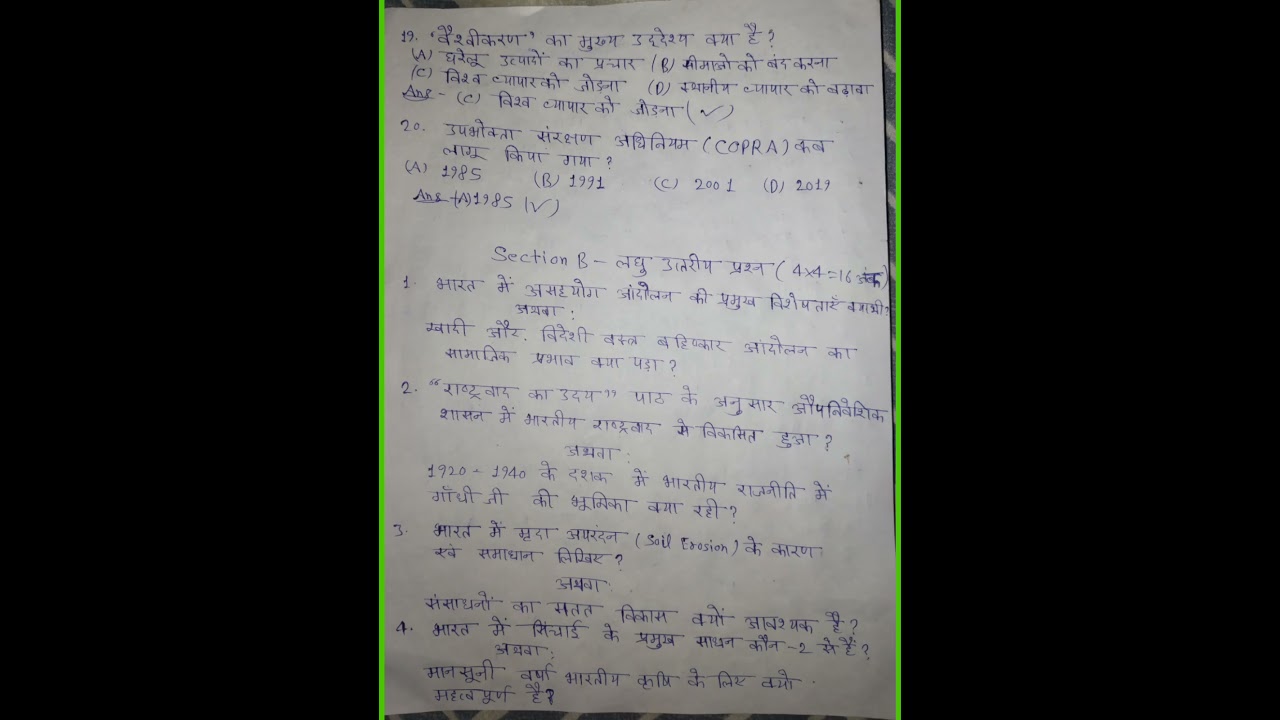 19. 'वैश्वीकरण' का मुख्य उद्देश्य क्या है?
(A) घरेलू उत्पादों का प्रचार (B) सीमाओं को बंद करना
(C) विश्व व्यापार को जोड़ना (D) स्थानीय व्यापार को बढ़ावा
Ans - (C) विश्व व्यापार को जोड़ना (✓)
20. उपभोक्ता संरक्षण अधिनियम (COPRA) कब
लागू किया गया?
(A) 1985 (B) 1991 (C) 2001 (D) 2019
Ans - (A) 1985 (✓)
Section B - लघु उत्तरीय प्रश्न (4×4=16 अंक)
1. भारत में असहयोग आंदोलन की प्रमुख विशेषताएँ क्या थी?
अथवा:
खादी और विदेशी वस्त्र बहिष्कार आंदोलन का
सामाजिक प्रभाव क्या पड़ा?
2. "राष्ट्रवाद का उदय" पाठ के अनुसार औपनिवेशिक
शासन में भारतीय राष्ट्रवाद से विकसित हुआ?
अथवा:
1920 - 1940 के दशक में भारतीय राजनीति में
गाँधी जी की भूमिका क्या रही?
3. भारत में मृदा अपरदन (Soil Erosion) के कारण
एवं समाधान लिखिए?
अथवा
संसाधनों का सतत विकास क्यों आवश्यक है?
4. भारत में सिंचाई के प्रमुख साधन कौन-2 से हैं?
अथवा:
मानसूनी वर्षा भारतीय कृषि के लिए क्यो
महत्वपूर्ण है?